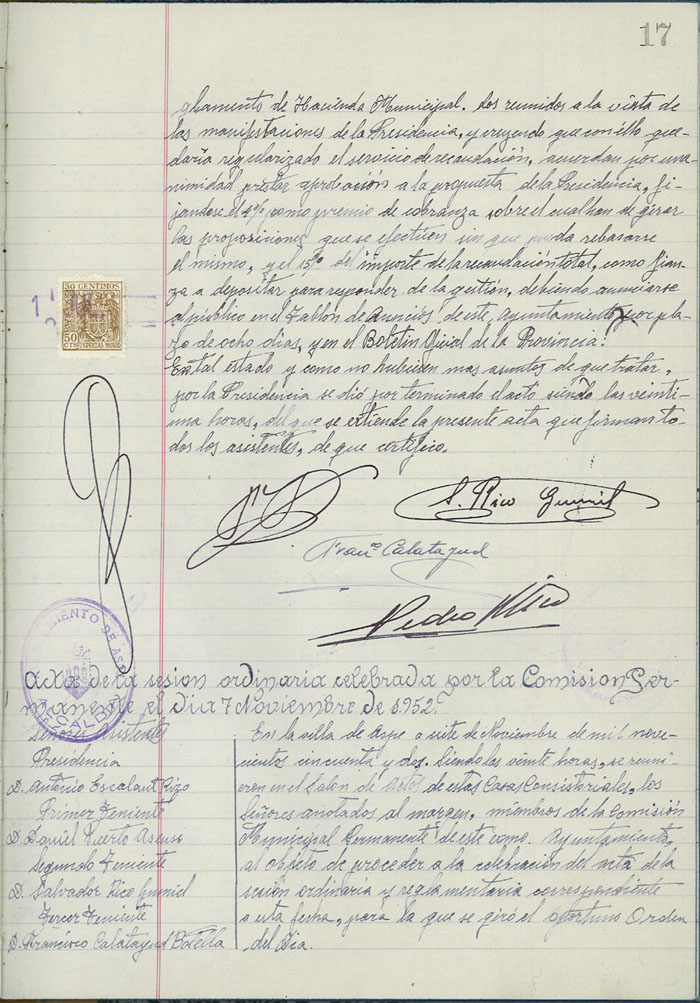 17
glamento de Hacienda Municipal. Los reunidos a la vista de
las manifestaciones de la Presidencia, y creyendo que con éllo que-
daría regularizado el servicio de recaudación, acuerdan por una-
nimidad prestar aprobación a la propuesta de la Presidencia, fi-
jandose el 4% como premio de cobranza sobre el cual han de girar
las proposiciones que se efectúen sin que pueda rebasarse
el mismo, y el 15% del importe de la recaudación total, como fian-
za a depositar para responder de la gestión, debiendo anunciarse
al público en el Tablón de Anuncios de este Ayuntamiento por pla-
zo de ocho días, y en el Boletin Oficial de la Provincia.
En tal estado y como no hubieren mas asuntos de que tratar,
por la Presidencia se dió por terminado el acto siendo las veinti-
una horas, del que se extiende la presente acta que firman to-
dos los asistentes, de que certifico.
50 CENTIMOS
50 CTS ESPECIAL MOVIL
S. Rico Gumiel
Franco Calatayud
Pedro
AYUNTAMIENTO DE ASPE
ALCALDIA
Acta de la sesion ordinaria celebrada por la Comision Per-
manente el dia 7 Noviembre de 1.952.
Señores asistentes
Presidencia
D. Antonio Escalant Rizo
Primer Teniente
D. Daniel Puerto Asensi
Segundo Teniente
D. Salvador Rico Gumiel
Tercer Teniente
D. Francisco Calatayud Botella
En la villa de Aspe a siete de Noviembre de mil nove-
cientos cincuenta y dos. Siendo las veinte horas, se reuni-
eron en el Salon de Actos de estas Casas Consistoriales, los
Señores anotados al margen, miembros de la Comisión
Municipal Permanente de este Ayuntamiento,
al objeto de proceder a la celebración del acta de la
sesión ordinaria y reglamentaria correspondiente
a esta fecha, para la que se giró el oportuno Orden
del Dia.